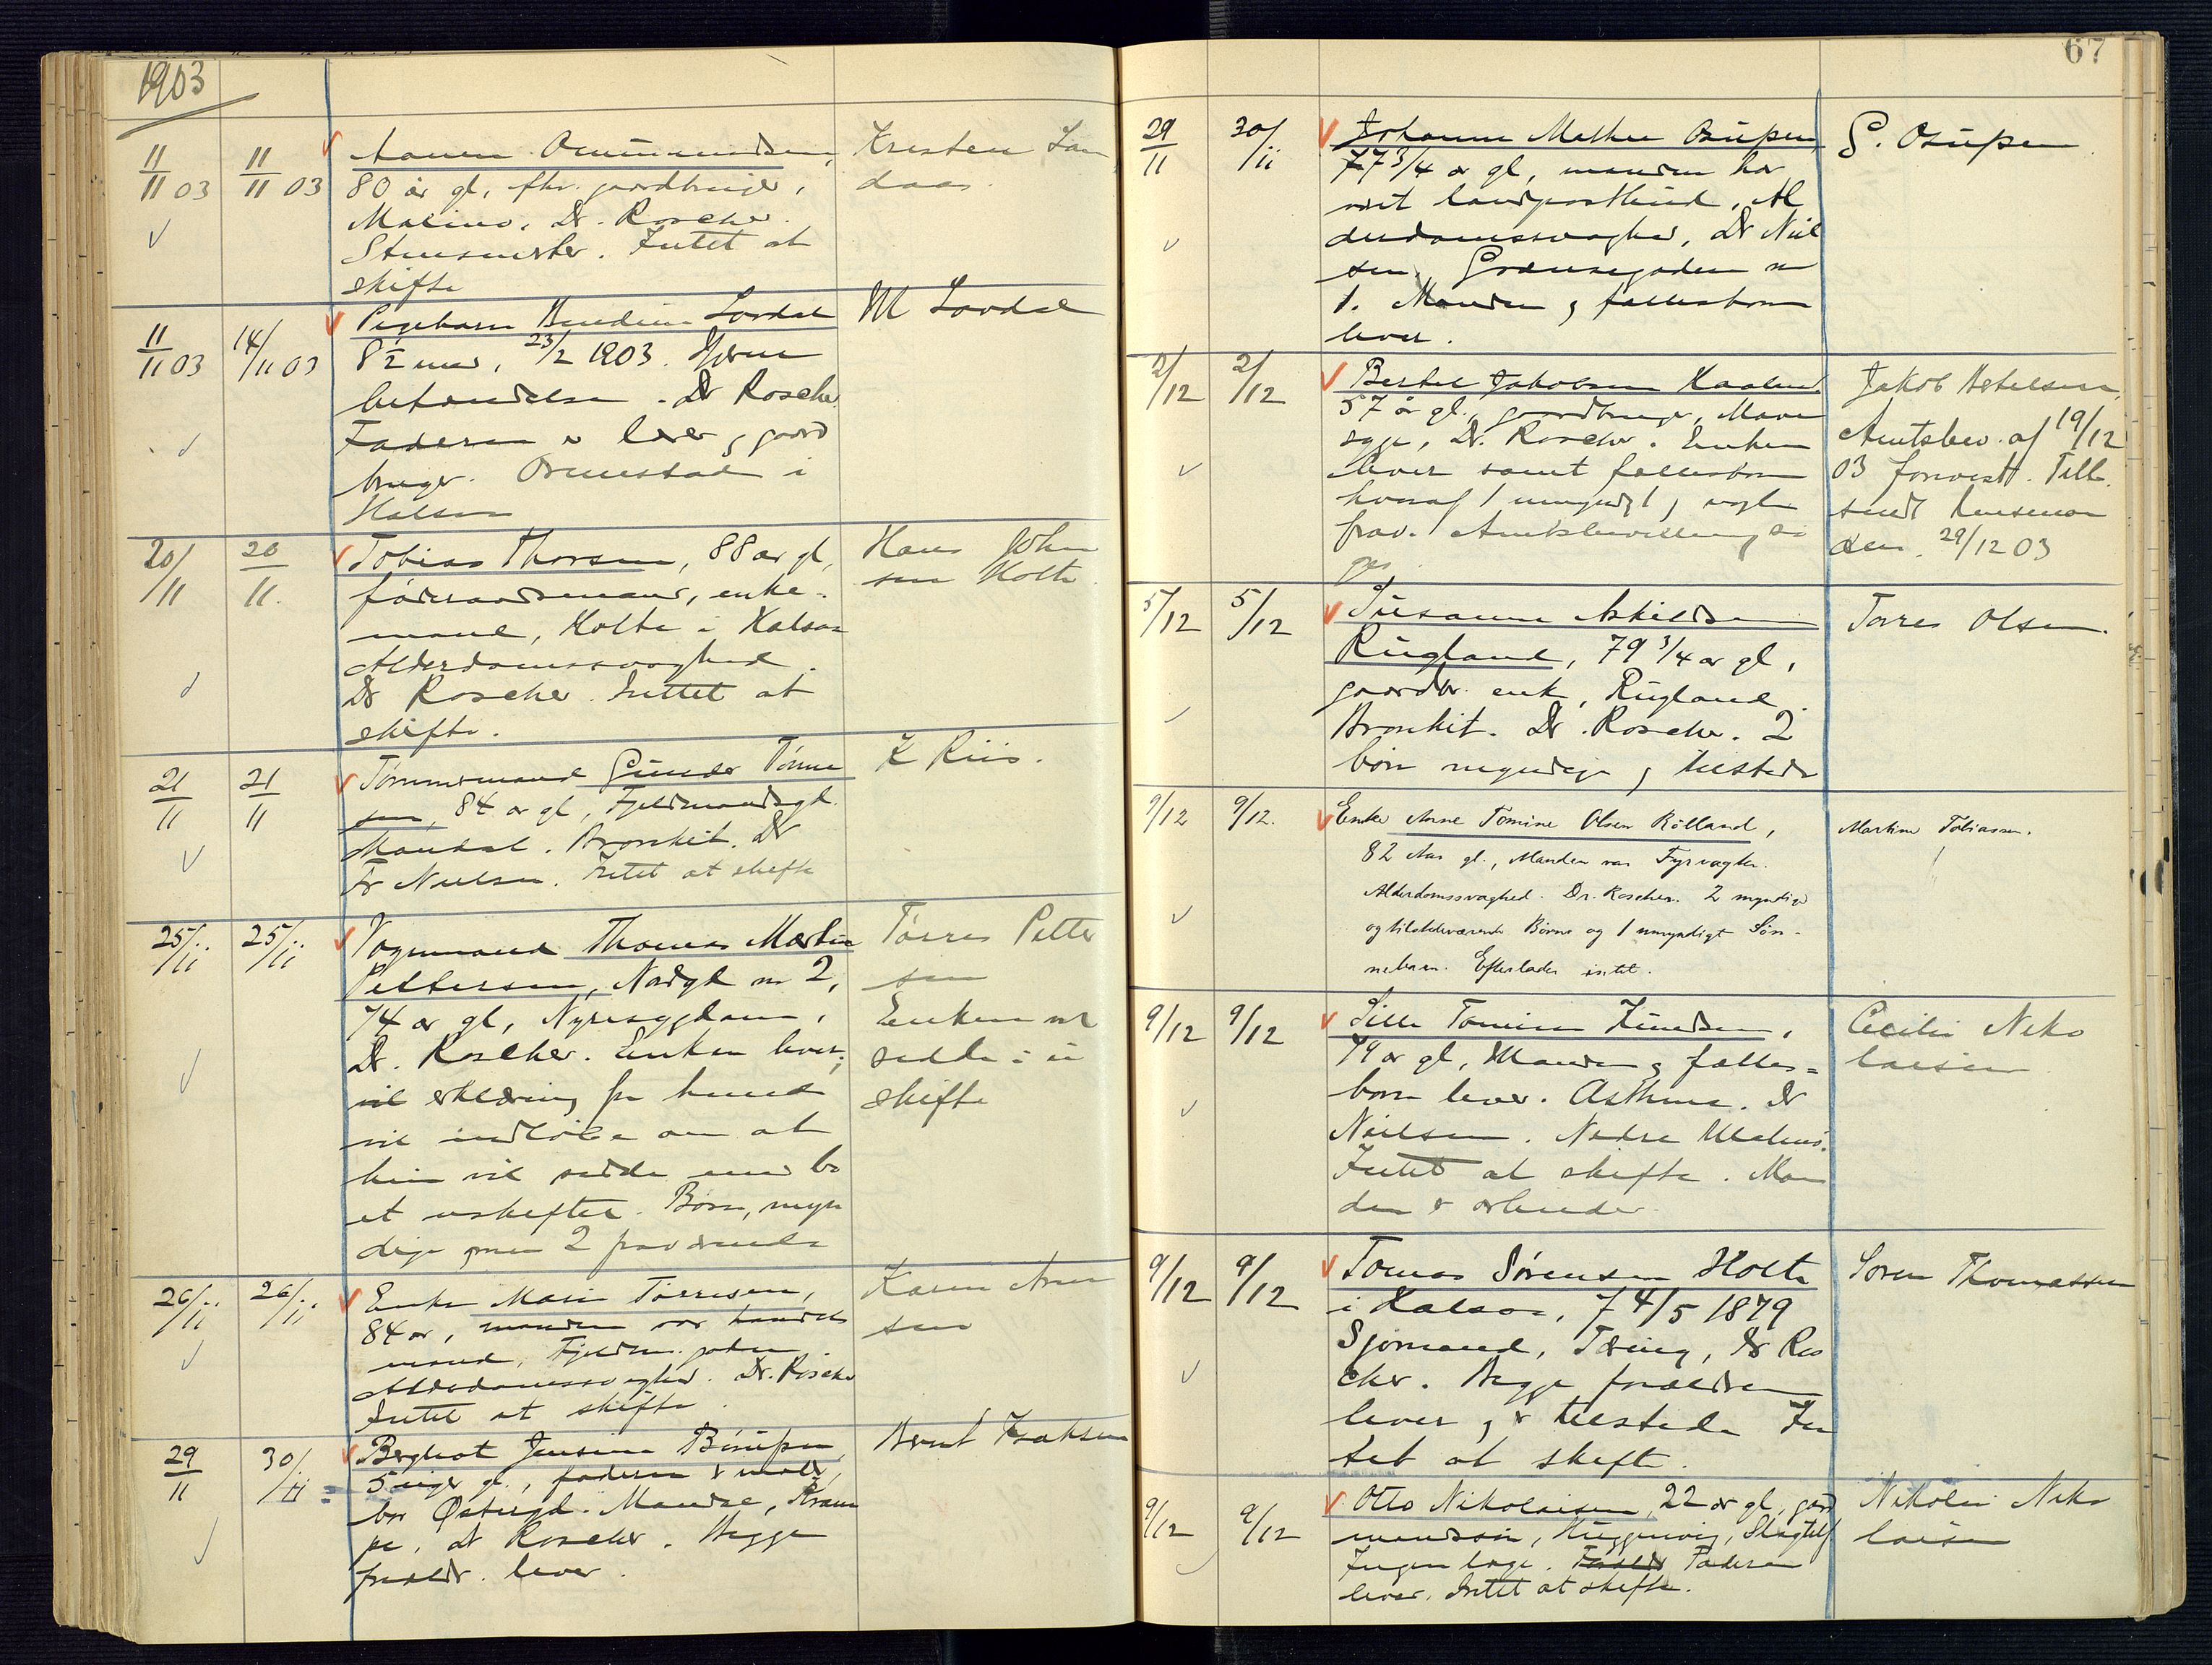 1903
11/11 03
11/11 03
80 år gl, fhv. gaardbruger,
Malmø. Dr. Roscher.
Intet at
skifte
Kristen Lan
daas.
11/11 03
14/11 03
Pigebarn Lovdal
8½ mnd, 23/2 1903. Hjerne
betændelse. Dr Roscher
Faderen er lærer og gaard
bruger. Ormestad i
Halsaa
M Lovdal
20/11
20/11.
Tobias Thorsen, 88 år gl,
føderaadsmand, enke-
mand, Holte i Halsaa
Alderdomssvaghed.
Dr Roscher. Intet at
skifte.
Hans John
sen Holte.
21/11
21/11
Tømmermand Gunder Tønne
sen, 84 år gl, Fjeldmandsgd.
Mandal. Bronkit. Dr
Fr Nielsen. Intet at skifte
K Riis.
25/11
25/11
Vognmand Thomas Martin
Pettersen, Nordgt nr 2,
74 år gl, Nyresygdom,
Dr. Roscher. Enken lever,
vil erklæring fra hende
vil indløbe om at
hun vil sidde med bo
et uskiftet. Børn, myn
dige, men 2 fraværende
Tørres Petter
sen
Enken vil
sidde i u
skifte
26/11
26/11
Enke Marie Tørresen,
84 år, manden var handels
mand, Fjeldm. gaden
Alderdomssvaghed. Dr. Roscher
Intet at skifte.
Karen Arn
sen
29/11
30/11
Bergliot Jensine Børufsen
5 uger gl., faderen er maler,
bor Østergd. Mandal, Kram
pe, Dr Roscher. Begge
forældr. lever.
Bernt Isaksen
67
29/11
30/11
Johanne Mathea Osufsen
77 3/4 år gl, manden har
vært landpostbud, Al
derdomssvaghed, Dr Niel
sen, Grænsegaden nr
1. Manden og fællesbørn
lever.
G. Osufsen
2/12
2/12
Bertel Jakobsen Haaland
57 år gl., gaardbruger, Mave
syge, Dr. Roscher. Enken
lever samt fællesbørn
hvoraf 1 umyndigt og nogle
frav. Amtsbevilling sø
ges.
Jakob
Amtsbev. af 19/12
03 forevist. Tilb.
sendt lensman
den. 29/12 03
5/12
5/12
Susanne Askildsen
Rugland, 79 3/4 år gl,
gaardbr. enke, Rugland.
Bronkit. Dr. Roscher. 2
børn myndige og tilstede
Torres Olsen.
9/12
9/12.
Enke Anne Tomine Olsen Rølland,
82 Aar gl., Manden var Fyrvogter.
Alderdomssvaghed. Dr. Roscher. 2 myndige
og tilstedeværende Børn og 1 umyndigt Søn-
nebarn. Efterlader intet.
Martin Tobiassen.
9/12
9/12
Sille Tomine Knudsen,
79 år gl, Manden og fælles=
børn lever. Asthma. Dr
Nielsen. Nedre Malmø.
Intet at skifte. Man
den er arbeider.
Cecilie Niko
laisen
9/12
9/12
Tomas Sørensen Holte
i Halsaa, f 4/5 1879
Sjømand, Tæring, Dr Ros
cher. Begge forældre
lever og er tilstede In
tet at skifte.
Søren Thomassen
9/12
9/12
Otto Nikolaisen, 22 år gl, gård
mandssøn,
Ingen læge. Faderen
lever. Intet at skifte.
Nikolai Niko
laisen